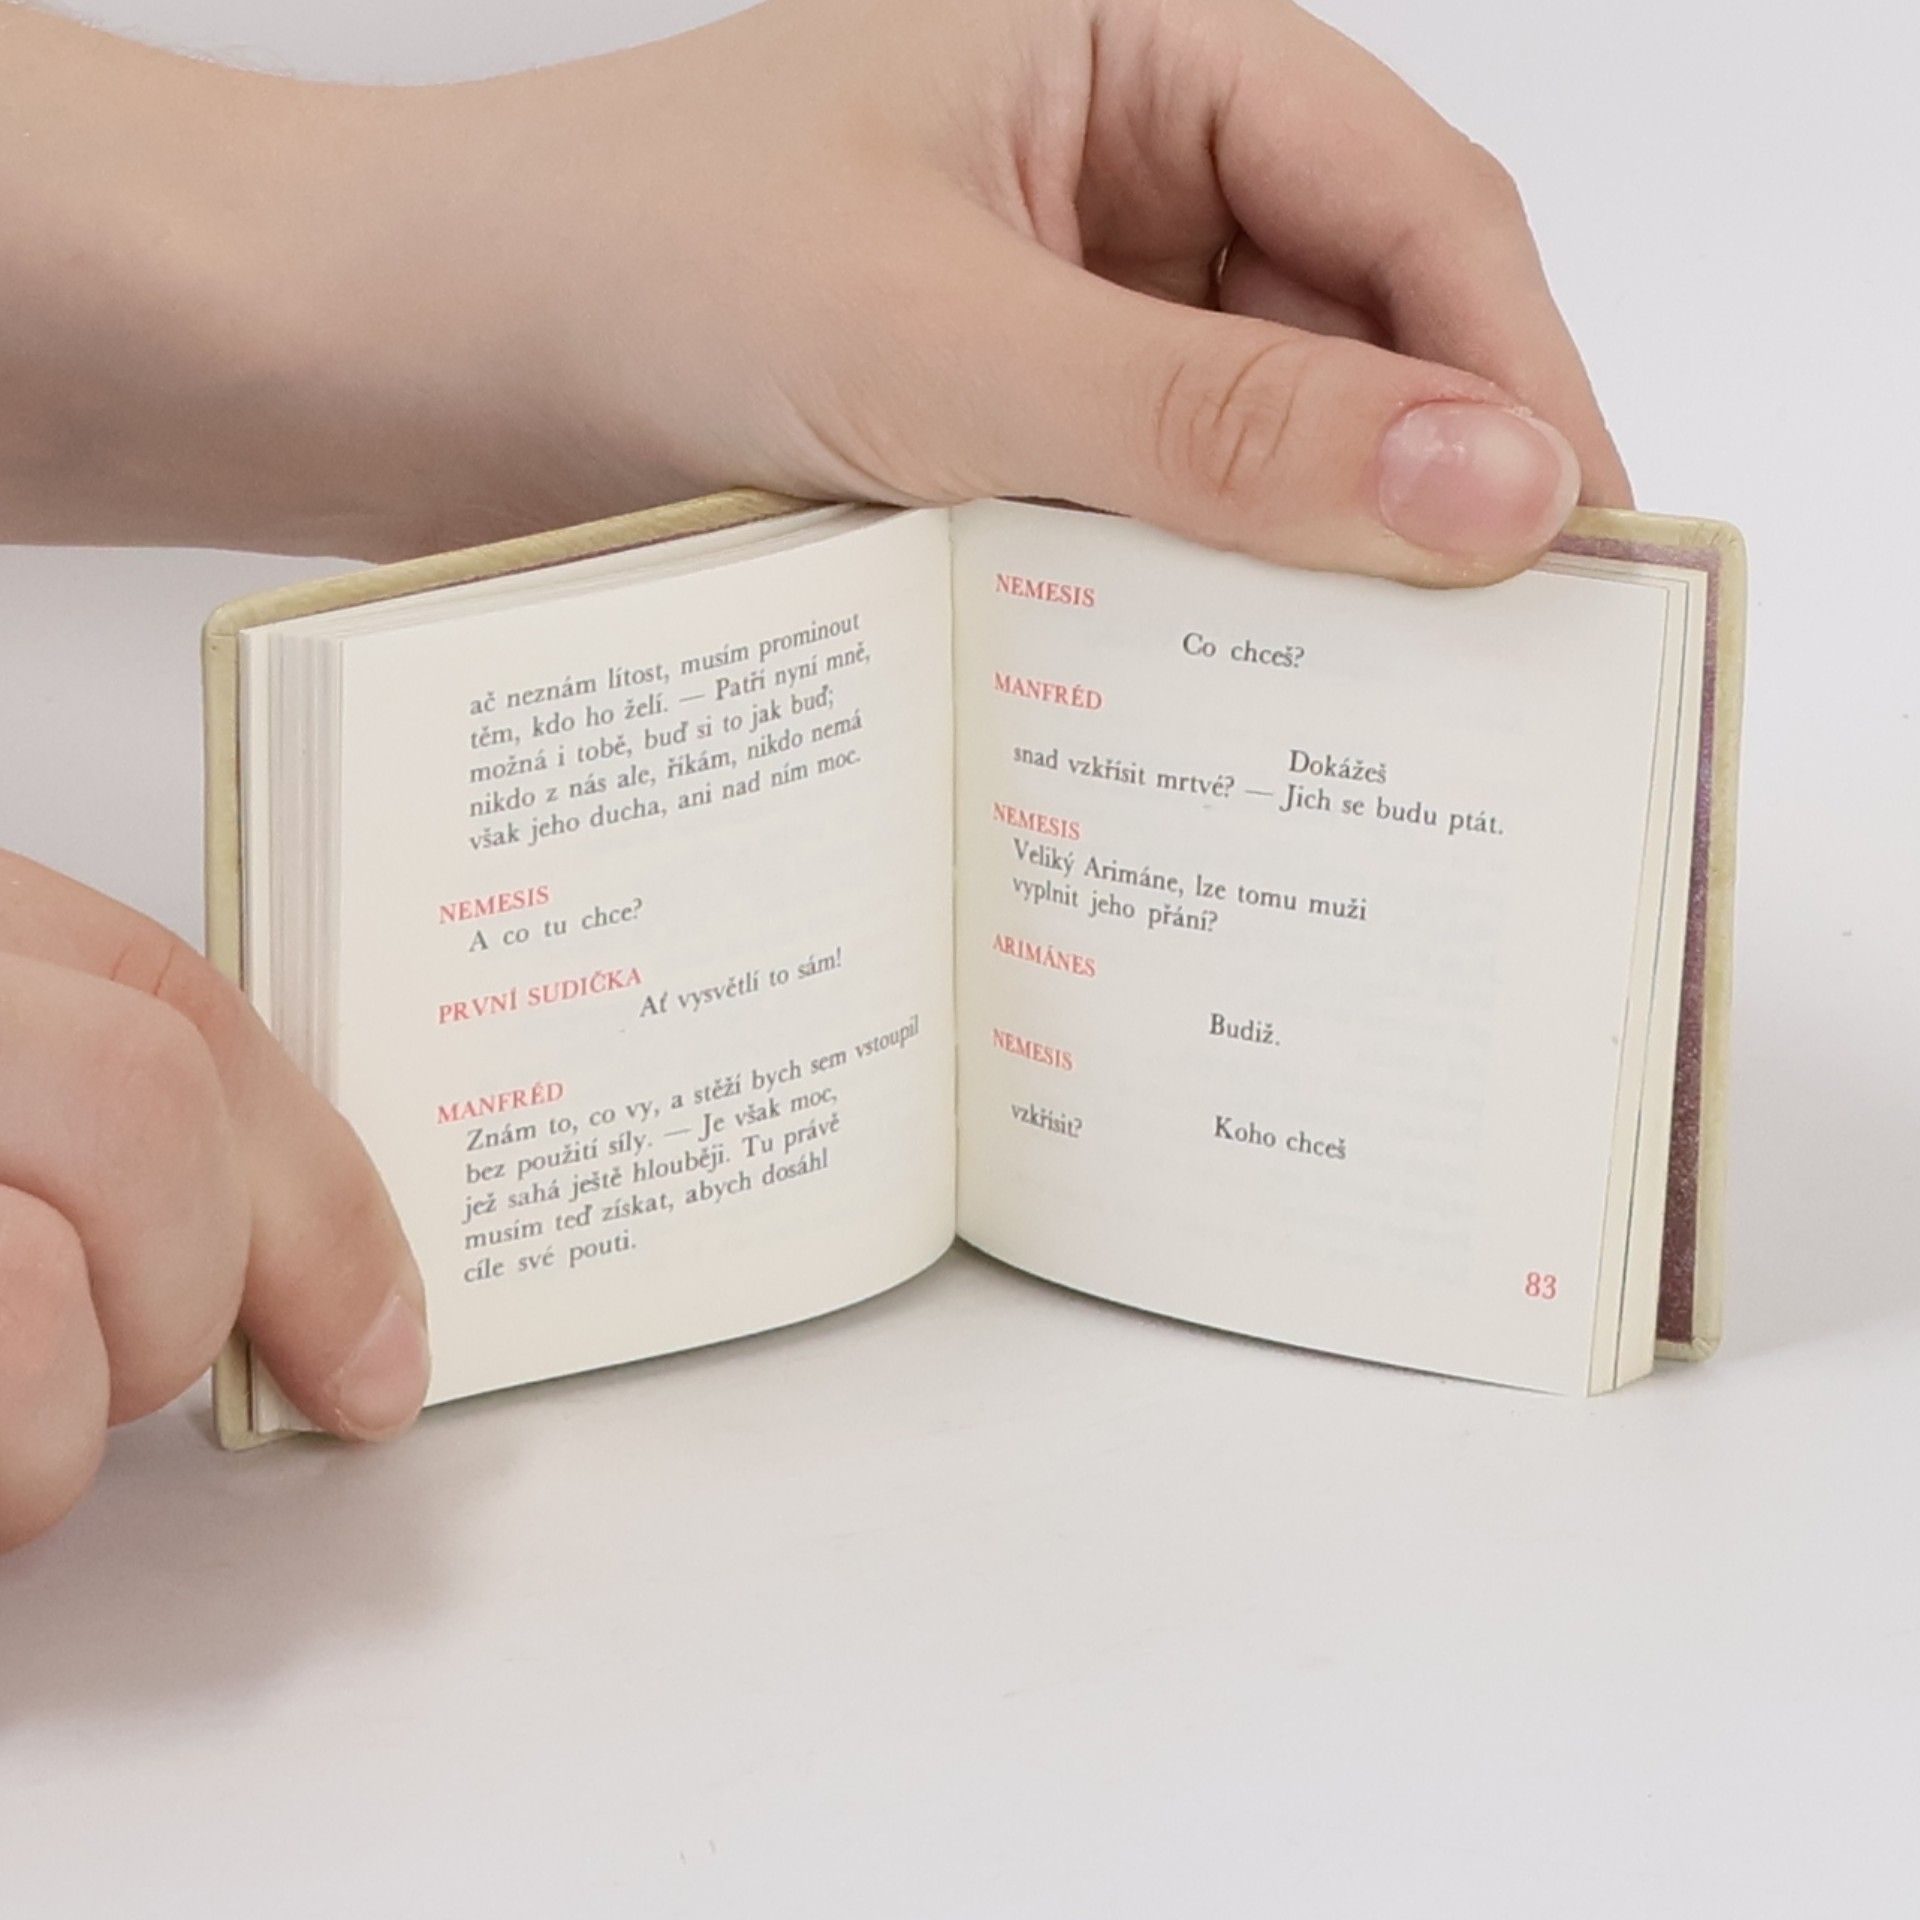 ač neznám lítost, musím prominout
těm, kdo ho želí. — Patří nyní mně,
možná i tobě, buď si to jak buď;
nikdo z nás ale, říkám, nikdo nemá
však jeho ducha, ani nad ním moc.
NEMESIS
A co tu chce?
PRVNÍ SUDIČKA
Ať vysvětlí to sám!
MANFRÉD
Znám to, co vy, a stěží bych sem vstoupil
bez použití síly. — Je však moc,
jež sahá ještě hlouběji. Tu právě
musím teď získat, abych dosáhl
cíle své pouti.
NEMESIS
Co chceš?
MANFRÉD
Dokážeš
snad vzkřísit mrtvé? — Jich se budu ptát.
NEMESIS
Veliký Arimáne, lze tomu muži
vyplnit jeho přání?
ARIMÁNES
Budiž.
NEMESIS
Koho chceš
vzkřísit?
83